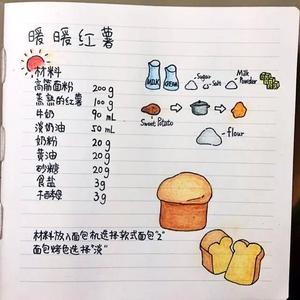 暖暖红薯
材料
高筋面粉 200g
蒸熟的红薯 100g
牛奶 90mL
淡奶油 50mL
奶粉 20g
黄油 20g
砂糖 20g
食盐 3g
干酵母 3g
MILK
CREAM
Sugar
Salt
Milk Powder
Sweet Potato
flour
材料放入面包机选择软式面包"2"
面包烤色选择"淡"